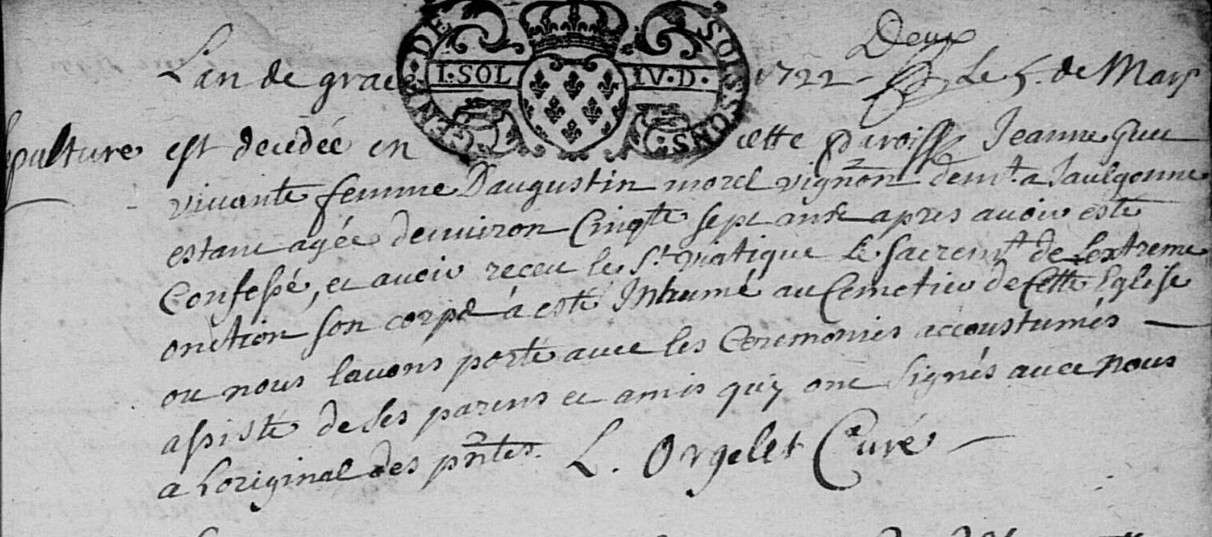 Deux
Lan de grace 1722 Le 5. de Mars
GEN. DE SOISSONS.
I. SOL IV. D.
pulture est decedée en cette paroisse Jeanne Guu
vivante femme Daugustin morel vignron demt. a Jaulgonne
estant agée denviron Cinqte sept ans apres avoir esté
Confessé, et avoir receu le St. viatique & le sacremt. de Lextreme
onction son corps à esté Inhumé au Cemetiere de Cette Eglise
ou nous lavons porté avec les Ceremonies accoustumés —
assisté de ses parens et amis quy ont signés avec nous
a Loriginal des pntes. L. Orgelet Curé —